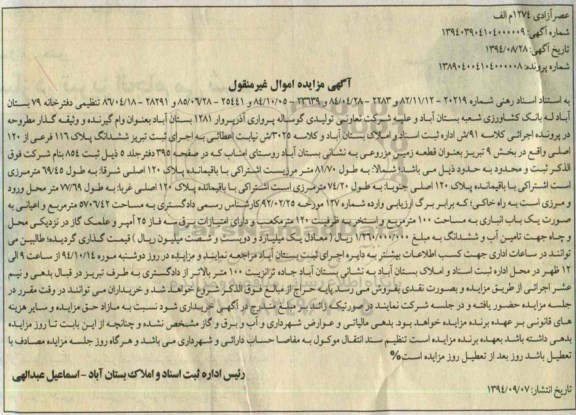 عصر آزادی ۱۲۷۴م الف
شماره آگهی: ۱۳۹۴۰۳۹۰۴۱۰۴۰۰۰۰۰۹
تاریخ آگهی: ۱۳۹۴/۰۸/۲۸
شماره پرونده: ۱۳۸۹۰۴۰۰۴۱۰۴۰۰۰۰۰۸
آگهی مزایده اموال غیرمنقول
به استناد اسناد رهنی شماره ۲۰۲۱۹ - ۸۲/۱۱/۱۲ و ۲۲۸۳ - ۸۴/۰۴/۲۸ و ۲۳۶۳۹ - ۸۴/۱۰/۰۵ و ۲۵۴۴۱ - ۸۵/۰۶/۲۸ و ۲۸۲۹۱ - ۸۶/۰۴/۱۸ تنظیمی دفترخانه ۷۹ بستان
آباد له بانک کشاورزی شعبه بستان آباد و علیه شرکت تعاونی تولیدی گوساله پرواری آذرپروار ۱۲۸۱ بستان آباد بعنوان وام گیرنده و وثیقه گذار مطروحه
در پرونده اجرائی کلاسه ۹۱/ش اداره ثبت اسناد و املاک بستان آباد و کلاسه ۳۰۲۵/ش نیابت اعطائی به اجرای ثبت تبریز ششدانگ پلاک ۱۱۶ فرعی از ۱۲۰
اصلی واقع در بخش ۹ تبریز بعنوان قطعه زمین مزروعی به نشانی بستان آباد روستای اشاب که در صفحه ۳۹۵ دفتر جلد ۵ ذیل ثبت ۸۵۴ بنام شرکت فوق
الذکر ثبت و محدود به حدود ذیل می باشد: شمالا: به طول ۸۱/۷۰ متر مرزیست اشتراکی با باقیمانده پلاک ۱۲۰ اصلی شرقا: به طول ۶۹/۴۵ مترمرزی
است اشتراکی با باقیمانده پلاک ۱۲۰ اصلی جنوبا: به طول ۷۴/۲۰ مترمرزی است اشتراکی با باقیمانده پلاک ۱۲۰ اصلی غربا: به طول ۷۷/۶۹ متر محل ورود
و مرزی است به راه خاکی؛ که برابر برگ ارزیابی وارده شماره ۱۲۷ مورخه ۹۲/۰۲/۲۵ کارشناس رسمی دادگستری به مساحت ۵۷۰۶/۴۲ مترمربع و اعیانی به
صورت یک باب انباری به مساحت ۱۰۰ مترمربع و استخر به ظرفیت ۱۲۰ مترمکعب و دارای امتیازات برق سه فاز ۲۵ آمپر و علمک گاز در نزدیکی محل
و چاه جهت تامین آب و ششدانگ به مبلغ ۱/۲۶۰/۰۰۰/۰۰۰ ریال ( معادل یک میلیارد و دویست و شصت میلیون ریال ) قیمت گذاری گردیده؛ طالبین می
توانند در ساعات اداری جهت کسب اطلاعات بیشتر به دایره اجرای ثبت بستان آباد مراجعه نمایند و مزایده در روز دوشنبه مورخه ۹۴/۱۰/۱۴ از ساعت ۹ الی
۱۲ ظهر در محل اداره ثبت اسناد و املاک بستان آباد به نشانی بستان آباد جاده ترانزیت ۱۰۰ متر بالاتر از دادگستری به طرف تبریز در قبال بدهی و نیم
عشر اجرائی از طریق مزایده و بصورت نقدی بفروش می رسد پایه حراج از مبلغ فوق الذکر شروع خواهد شد و خریداران می توانند در وقت مقرر در
جلسه مزایده حضور یافته و در جلسه شرکت نمایند در صورتیکه زائد بر مبلغ مندرج در آگهی خریداری شود نسبت به مازاد حق مزایده و سایر هزینه
های قانونی بر عهده برنده مزایده خواهد بود. بدهی مالیاتی و عوارض شهرداری و آب و برق و گاز مشخص نشده و چنانچه از این بابت تا روز مزایده
بدهی داشته باشد بعهده برنده مزایده است تنظیم سند انتقال موکول به مفاصا حساب دارائی و شهرداری می باشد و هرگاه روز جلسه مزایده مصادف با
تعطیل باشد روز بعد از تعطیل روز مزایده است%
رئیس اداره ثبت اسناد و املاک بستان آباد - اسماعیل عبدالهی
تاریخ انتشار: ۱۳۹۴/۰۹/۰۷